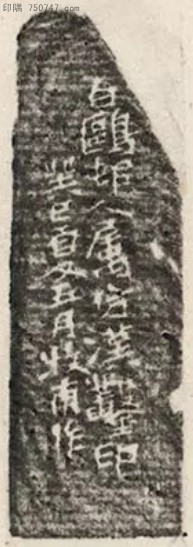 印隅 750747.com
白鷗人屬仿漢鑿印
癸巳夏五月牧甫作